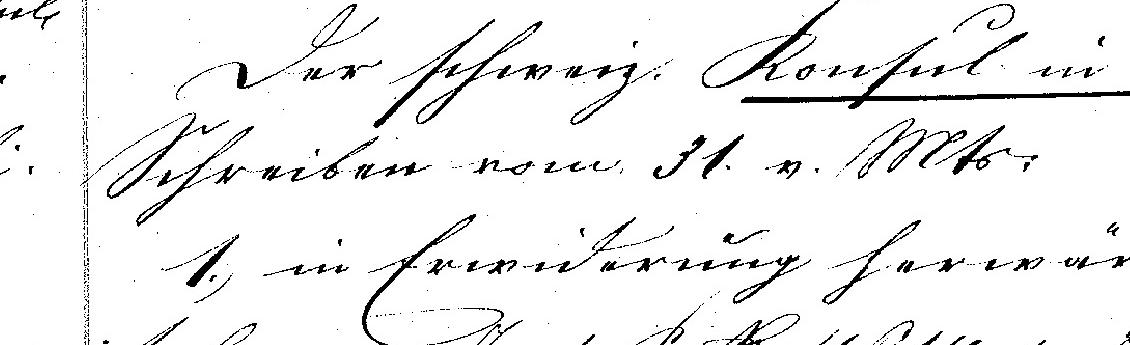 Der schweiz. Konsul in
Schreiben vom 31. v. Mts:
1., in Erwiderung herwär